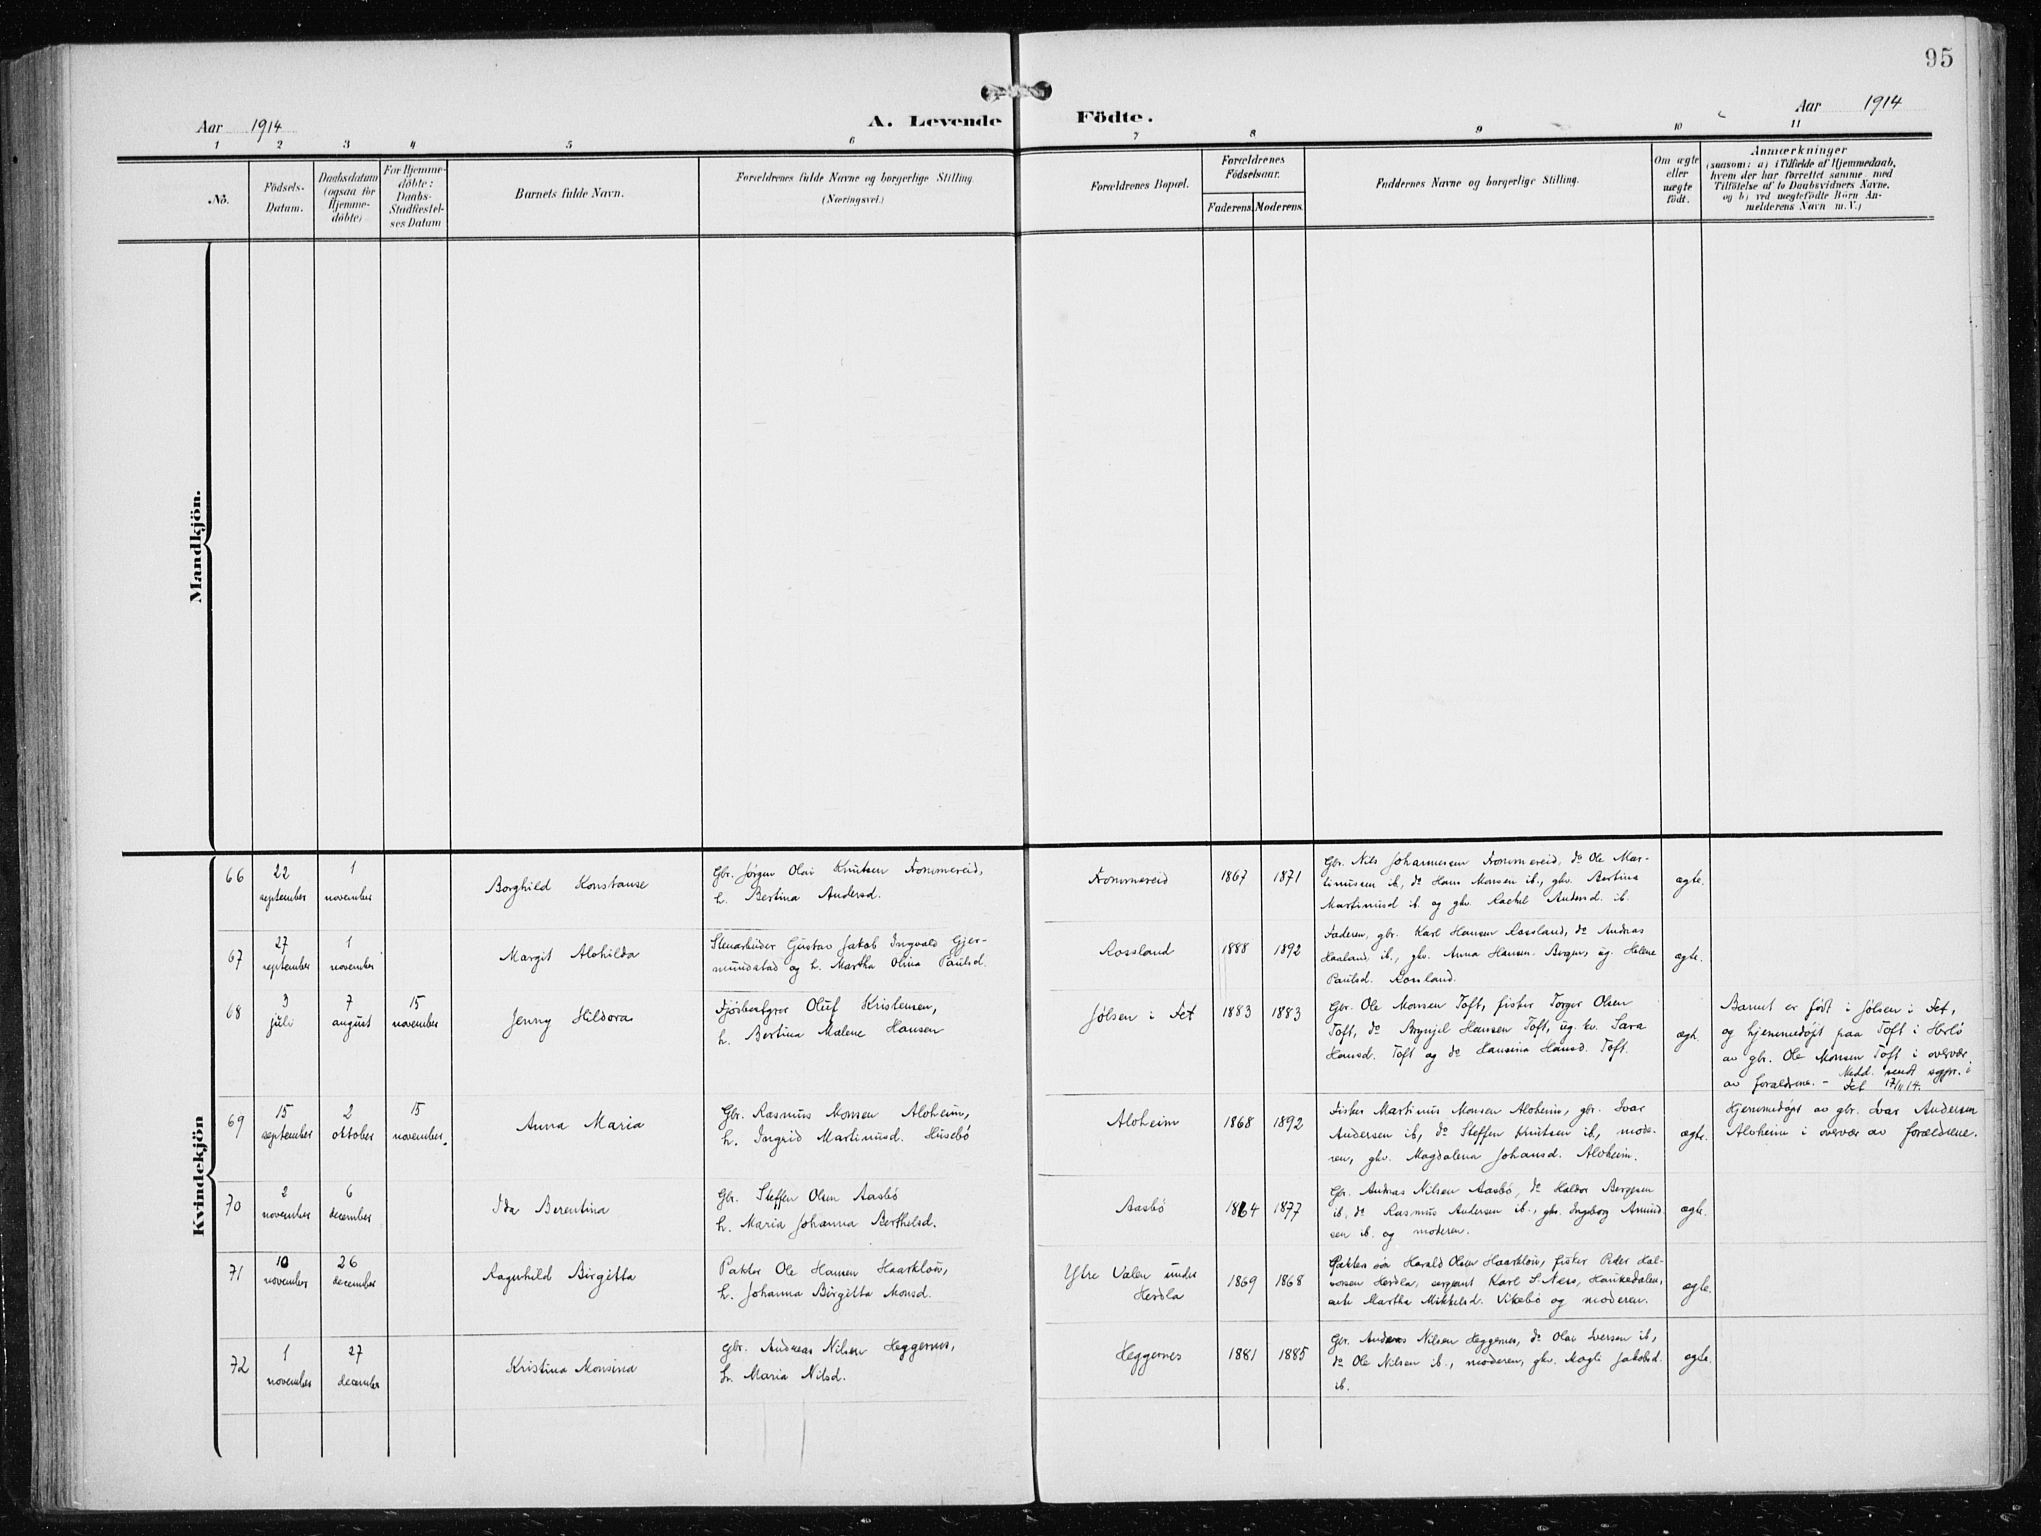 95
Aar 1914
A. Levende Födte.
Aar 1914
1 2 3 4 5 6 7 8 9 10 11
No.
Födsels-
Datum.
Daabsdatum
(ogsaa for
Hjemme-
döbte)
For Hjemme-
döbte:
Daabs-
Stadfæstel-
ses Datum
Barnets fulde Navn.
Forældrenes fulde Navne og borgerlige Stilling
(Næringsvei.)
Forældrenes Bopæl.
Forældrenes
Födselsaar.
Faderens. Moderens.
Faddernes Navne og borgerlige Stilling.
Om ægte
eller
uægte
födt.
Anmærkninger
(saasom: a) i Tilfælde af Hjemmedaab,
hvem der har forrettet samme, med
Tilföielse af to Daabsvidners Navne,
og b) ved uægtefödte Börn An-
melderens Navn m. V.)
Mandkjön.
Kvindekjön
66
22
september
1
november
Borghild Konstanse
Gbr. Jørgen Olai Knutsen Frommereid,
h. Bertina Andersd.
Frommereid
1867 1871
Gbr. Nils Johannesen Frommereid, do Ole Mar-
tinussen ib., do Hans Monsen ib., gkv. Bertina
Martinusd ib. og gkv. Rachel Andersd. ib.
ægte.
67
27
september
1
november
Margit Alohilda
Stenarbeider Gustav Jakob Ingvald Gjer-
mundstad og h. Martha Olina Paulsd.
Rossland
1888 1892
Faderen, gbr. Karl Hansen Rossland, do Andreas
Haaland ib., gkv. Anna Hansen Bergen, ug. Helene
Paulsd. Rossland.
ægte.
68
3
juli
7
august
15
november
Jenny Hildora
Fjøsbestyrer Oluf Kristensen,
h. Bertina Malene Hansen
Jølsen i Fet
1883 1883
Gbr. Ole Monsen Toft, fisker Torger Olsen
Toft, do Brynjel Hansen Toft, ug. kv. Sara
Hansd. Toft og do Hansina Hansd. Toft.
ægte.
Barnet er født i Jølsen i Fet,
og hjemmedøpt paa Toft i Herlø
av gbr. Ole Monsen Toft i overvær
av forældrene. - Medd. sendt sgpr. i
Fet 17/11 14.
69
15
september
2
oktober
15
november.
Anna Maria
Gbr. Rasmus Monsen Aloheim,
h. Ingrid Martinusd. Husebø
Aloheim
1868 1892
Fisker Martinus Monsen Aloheim, gbr. Ivar
Andersen ib, do Steffen Knutsen ib., mode-
ren, gkv. Magdalena Johansd. Aloheim.
ægte.
Hjemmedøpt av gbr. Ivar Andersen
Aloheim i overvær av forældrene.
70
2
november
6
december
Ida Berentina
Gbr. Steffen Olsen Aasbø
h. Maria Johanna Berthelsd.
Aasbø
1864 1877
Gbr. Andreas Nilsen Aasbø, do Haldor Bergesen
ib, do Rasmus Andersen ib., gkv. Ingeborg Amund-
sen ib. og moderen.
ægte.
71
10
november
26
december
Aagnhild Birgitta
Pakter Ole Hansen Haarklou,
h. Johanna Birgitta Monsd.
Ytre Valen under
Herdla
1869 1868
Pakter søn Harald Olsen Haarklou, fisker Peder Hal-
vorsen Herdla, sergeant Karl S. Ness, Haukedalen,
enke Martha Mikkelsd. Vikebø og moderen.
ægte.
72
1
november
27
december
Kristina Monsina
Gbr. Andreas Nilsen Heggernes,
h. Maria Nilsd.
Heggernes
1881 1885
Gbr. Anders Nilsen Heggernes, do Olai Iversen ib,
do Ole Nilsen ib., moderen, gkv. Magli Jakobsd.
ib.
ægte.